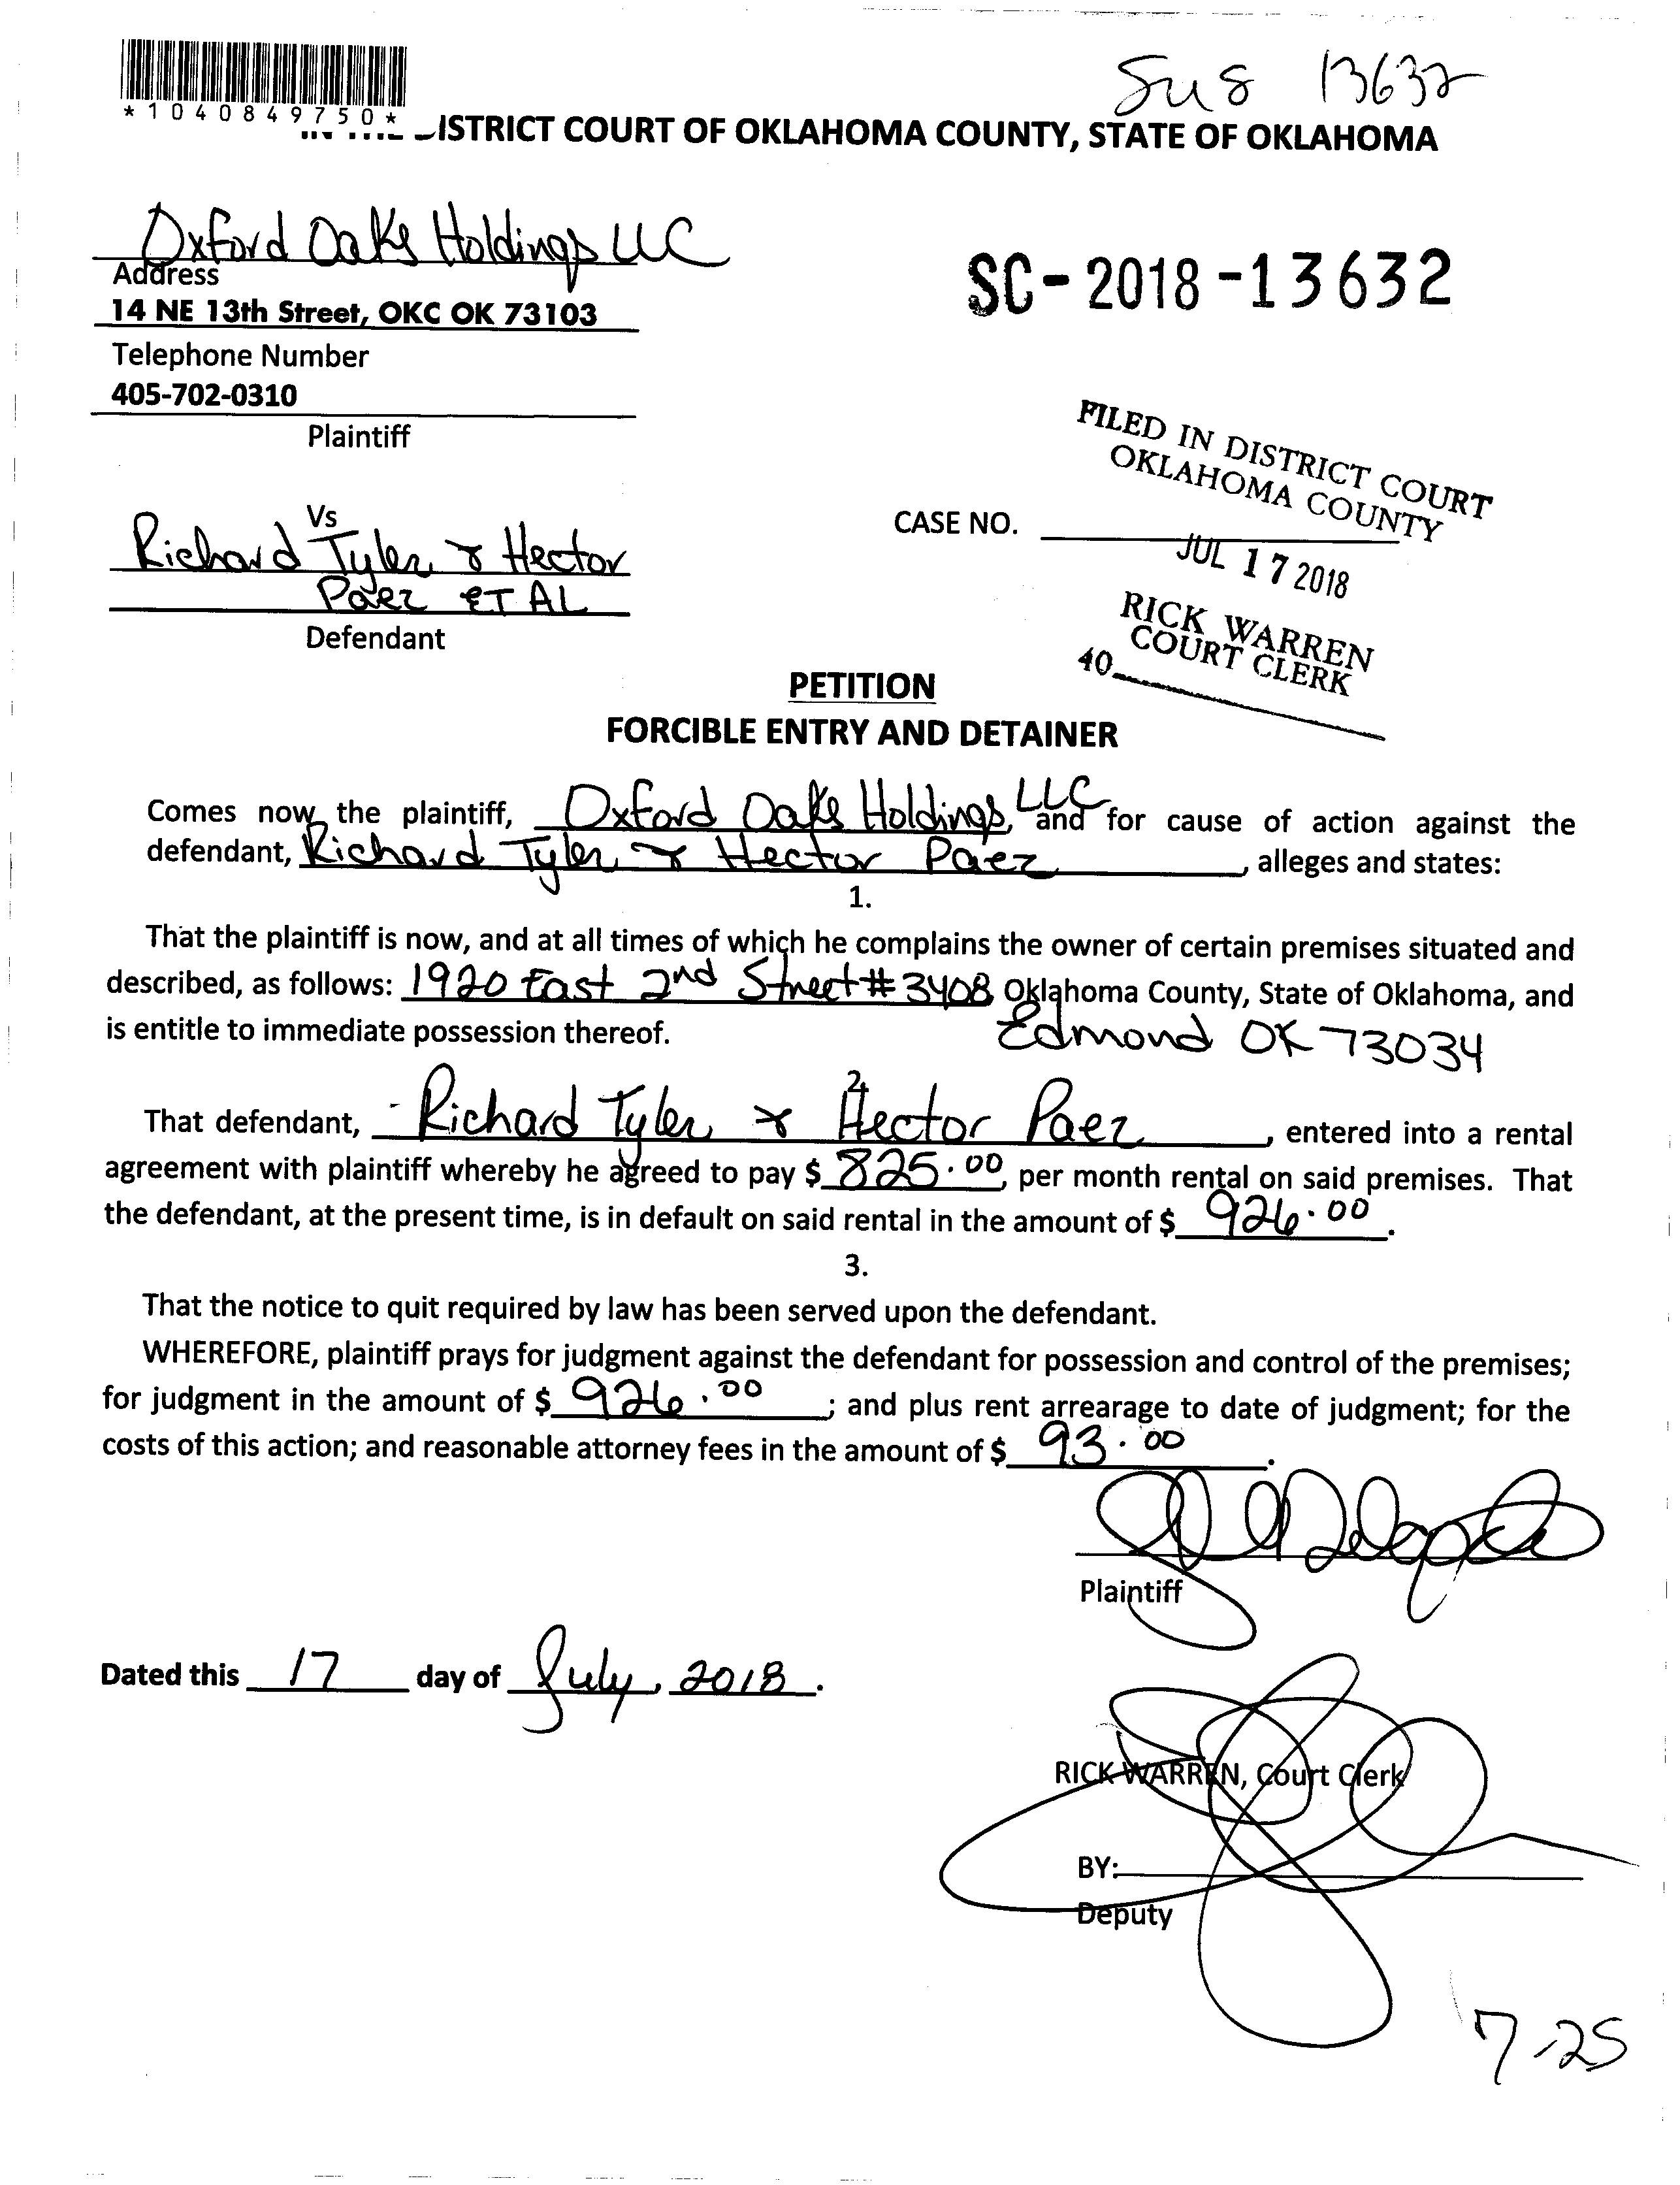 *1040849750*
Su8 13632
ISTRICT COURT OF OKLAHOMA COUNTY, STATE OF OKLAHOMA
Oxford Oaks Holdings LLC
Address
14 NE 13th Street, OKC OK 73103
SC-2018-13632
Telephone Number
405-702-0310
Plaintiff
FILED IN DISTRICT COURT
OKLAHOMA COUNTY
Vs
CASE NO.
Richard Tyler & Hector
Paez ET AL
JUL 17 2018
Defendant
RICK WARREN
COURT CLERK
40
PETITION
FORCIBLE ENTRY AND DETAINER
Comes now the plaintiff, Oxford Oaks Holdings, LLC and for cause of action against the
defendant, Richard Tyler & Hector Paez, alleges and states:
1.
That the plaintiff is now, and at all times of which he complains the owner of certain premises situated and
described, as follows: 1920 East 2nd Street #3408 Oklahoma County, State of Oklahoma, and
is entitle to immediate possession thereof. Edmond OK 73034
2.
That defendant, Richard Tyler & Hector Paez, entered into a rental
agreement with plaintiff whereby he agreed to pay $ 825.00, per month rental on said premises. That
the defendant, at the present time, is in default on said rental in the amount of $ 926.00.
3.
That the notice to quit required by law has been served upon the defendant.
WHEREFORE, plaintiff prays for judgment against the defendant for possession and control of the premises;
for judgment in the amount of $ 926.00; and plus rent arrearage to date of judgment; for the
costs of this action; and reasonable attorney fees in the amount of $ 93.00.
Plaintiff
Dated this 17 day of July, 2018.
RICK WARREN, Court Clerk
BY:
Deputy
7-25